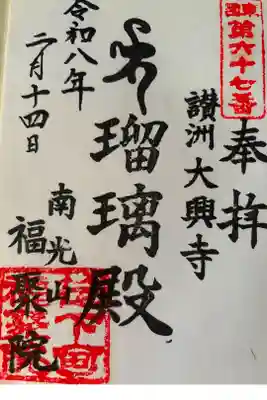 第六十七番
奉拝
讃洲大興寺
瑠璃殿
南光山
福聚院
令和八年
二月十四日